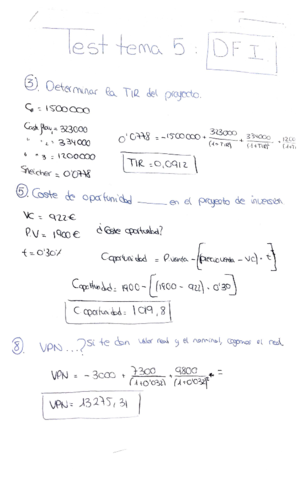 Test tema 5: DFI.
③ Determinar la TIR del proyecto.
C₀ = 1500000
Cash flow₁ = 323000
" " ₂ = 334000
" " ₃ = 1200000
Sneicher = 0'0778
0'0778 = -1500000 + 323000/(1+TIR)¹ + 334000/(1+TIR)² + 1200
TIR = 0,0912
⑤ Coste de oportunidad ____ en el proyecto de inversión
VC = 922€
PV = 1900€
t = 0'30%
¿Coste oportunidad?
C oportunidad = P venta - [(precio venta - VC) · t]
C oportunidad = 1900 - [(1900 - 922) · 0'30]
C oportunidad = 1019,8
⑧ VPN...? Si te dan valor real y el nominal, cogemos el real.
VPN = -3000 + 7300/(1+0'032) + 9800/(1+0'032)² =
VPN = 13275,31